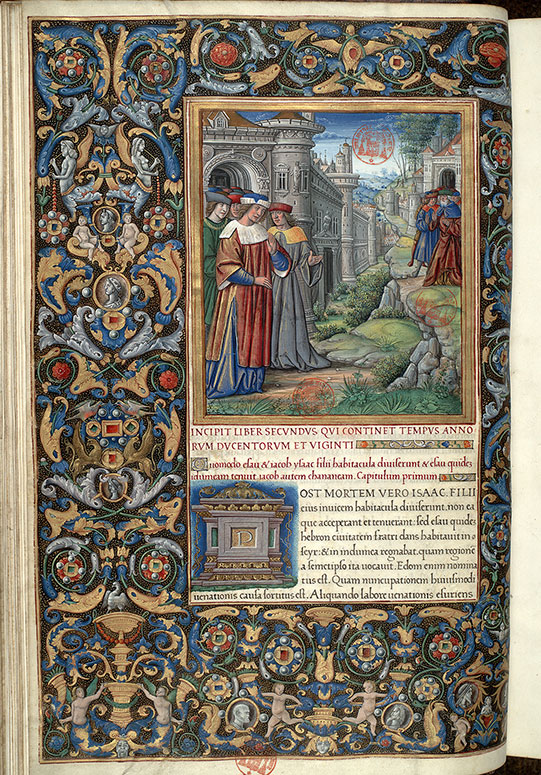 INCIPIT LIBER SECVNDVS QVI CONTINET TEMPVS ANNO
RVM DVCENTORVM ET VIGINTI
Quomodo esau & iacob ysaac filii habitacula diuiserunt & esau quidē
idumeam tenuit iacob autem chananeam. Capitulum primum
P
OST MORTEM VERO ISAAC. FILII
eius inuicem habitacula diuiserunt. non ea
que acceperant et tenuerant: sed esau quidē
hebron ciuitatem fratri dans habitauit in
seyr: & in idumea regnabat. quam regionē
a semetipso ita uocauit. Edom enim nomina
tus est. Quam nuncupationem huiusmodi
uenationis causa sortitus est. Aliquando labore uenationis esuriens